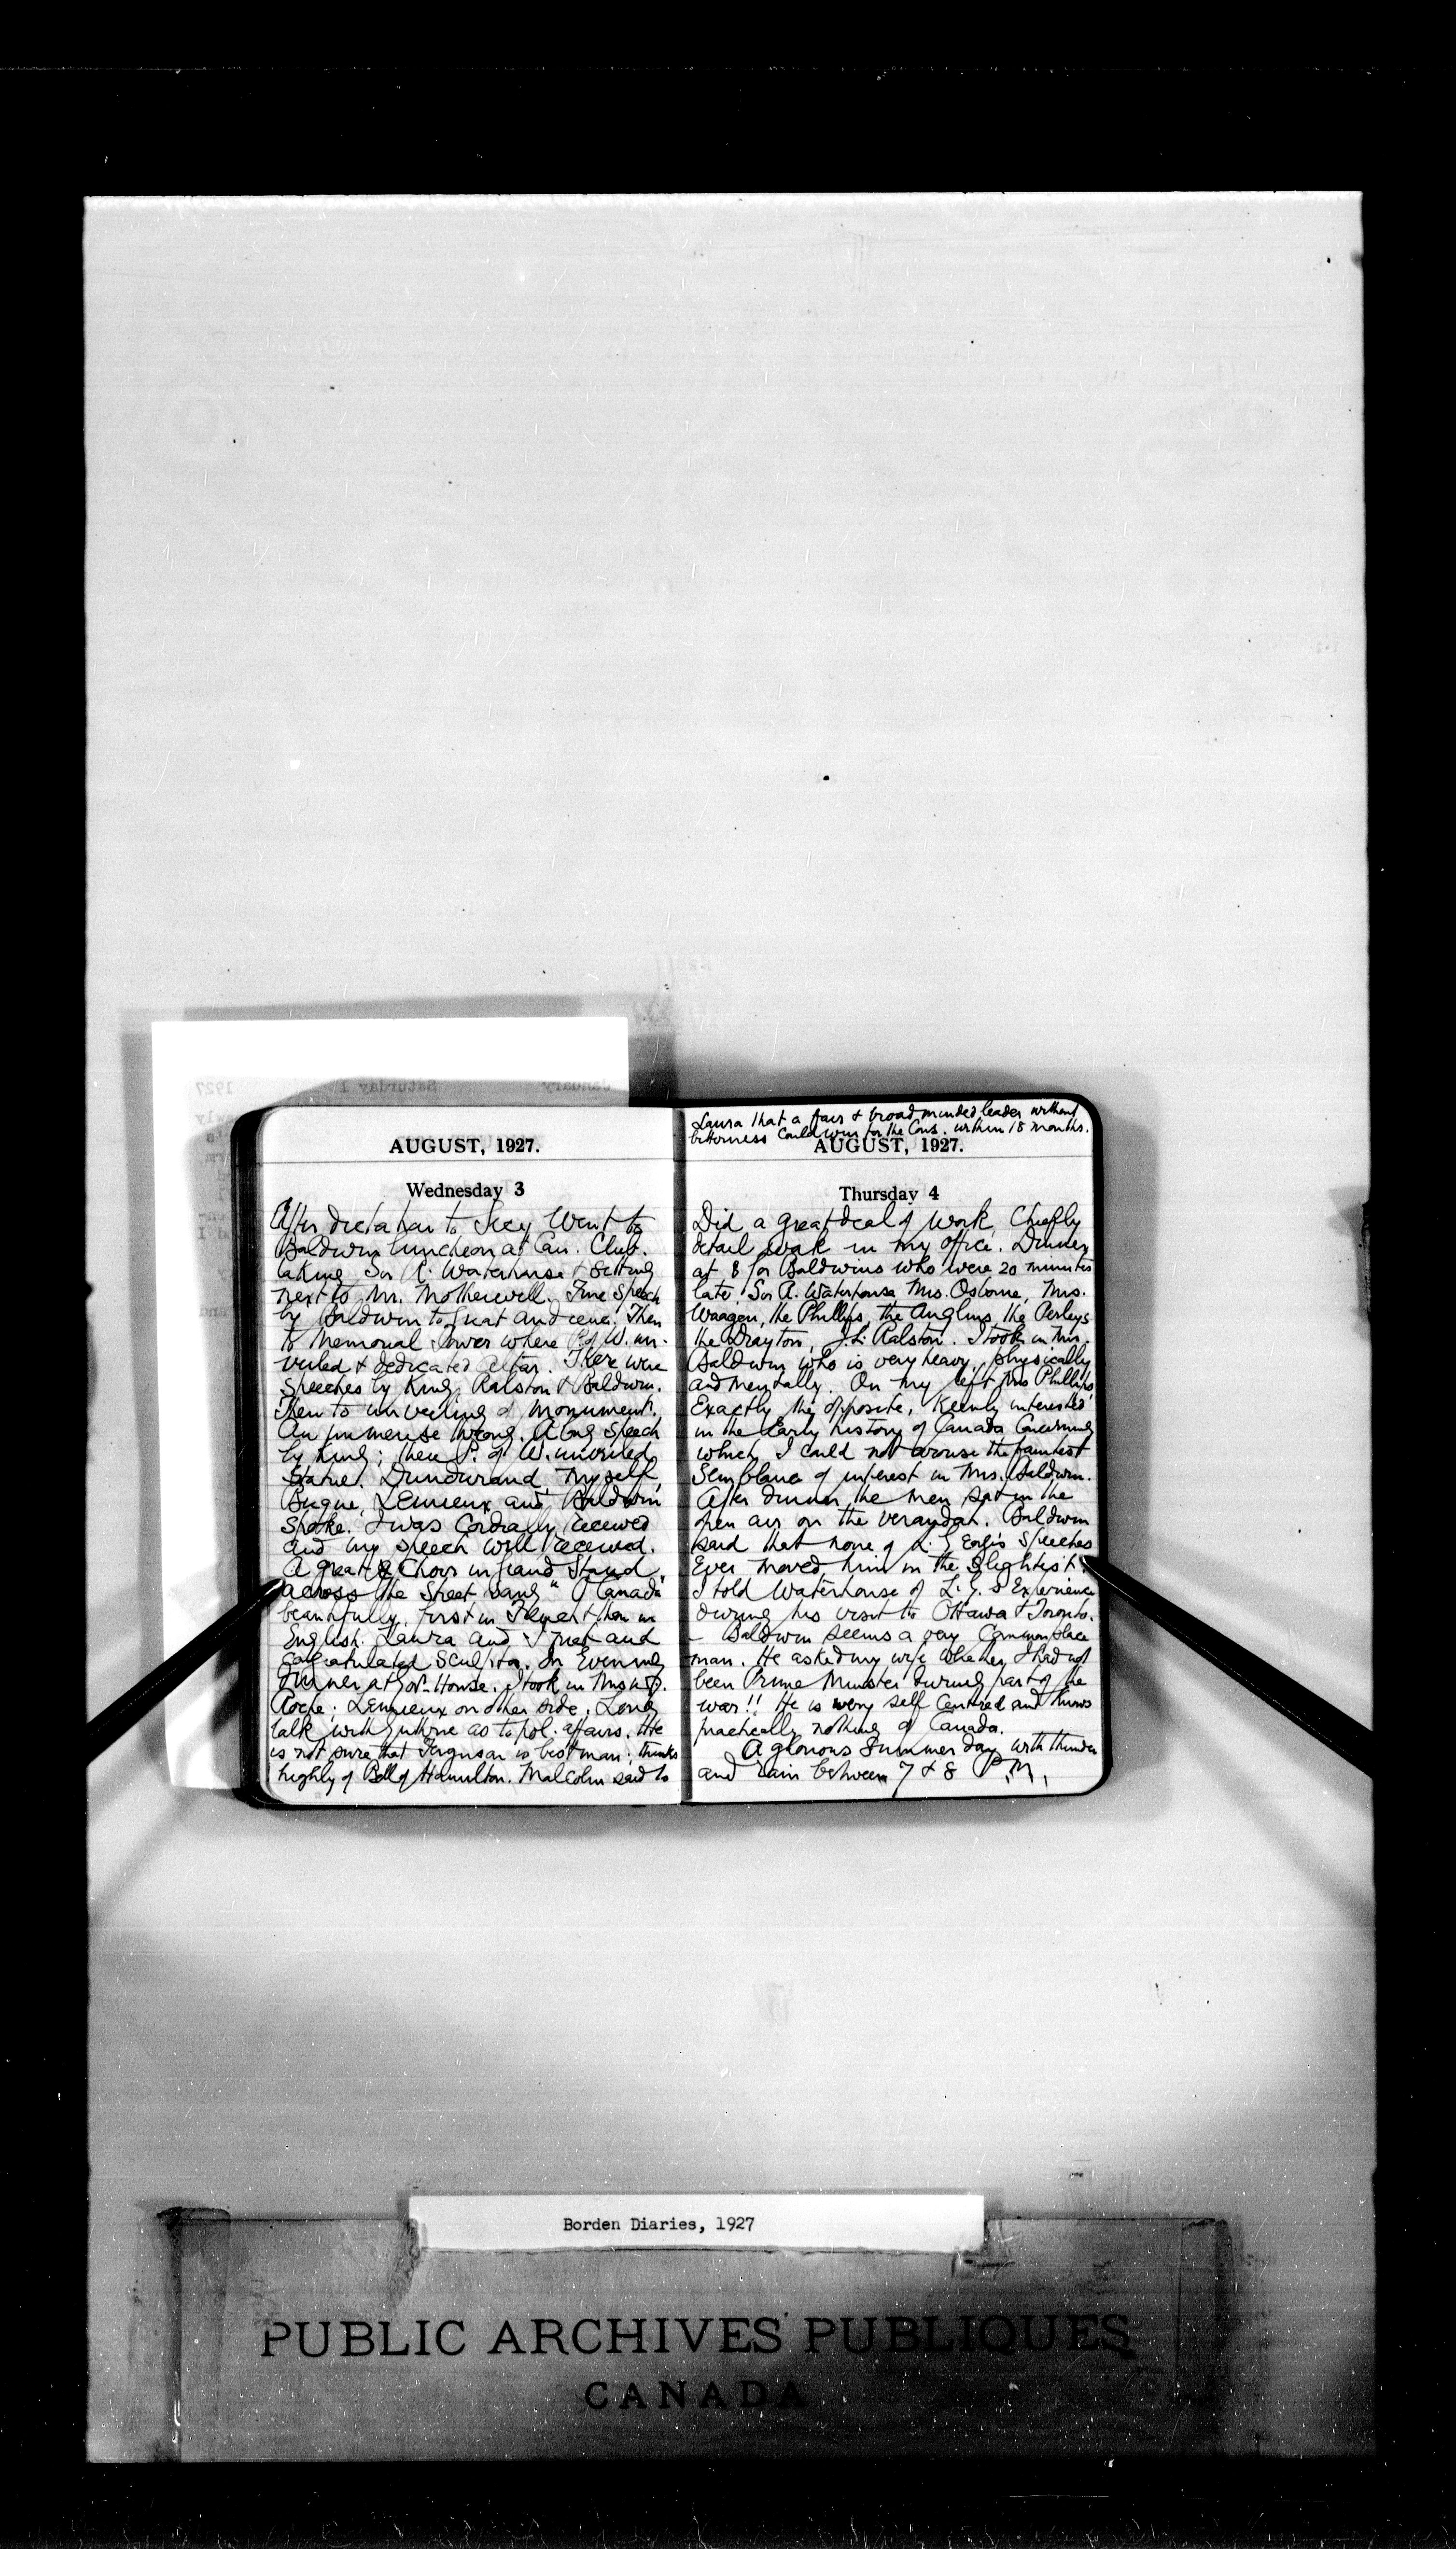 AUGUST, 1927.
Wednesday 3
After dictation to Secy Went to
Baldwin luncheon at Can. Club.
taking Sir A. Waterhouse & sitting
next to Mr. Motherwell. Fine speech
by Baldwin to great audience. Then
to Memorial Tower where P. of W. un-
veiled & dedicated Altar. There were
speeches by King, Ralston & Baldwin.
Then to unveiling of Monument.
An immense throng. A long speech
by King; then P. of W. unveiled
Statue. Dandurand, myself,
Lemieux and Baldwin
spoke. I was Cordially received
and my speech well received.
A great Choir in grand Stand
across the Street sang "O Canada"
beautifully, first in French then in
English. Laura and I met and
congratulated Sculptor. In Evening
Dinner at Gov. House. I took in Mrs
Roche; Lemieux on other side. Long
talk with Guthrie as to pol. affairs. He
is not sure that Ferguson is best man. thinks
highly of Bell of Hamilton. Malcolm said to
Laura that a fair & broad minded leader without
bitterness Could win for the Cons. within 18 months.
AUGUST, 1927.
Thursday 4
Did a great deal of work, Chiefly
detail work in my office. Dinner
at 8 for Baldwins who were 20 minutes
late; Sir A. Waterhouse Mrs. Osborne, Mrs.
Waagen, the Phillips, the Anglins, the Perleys
the Drayton, J.L. Ralston. I took in Mrs.
Baldwin who is very heavy, physically
and mentally. On my left Mrs Phillips
Exactly the opposite, Keenly interested
in the Early history of Canada Concerning
which I could not arouse the faintest
Semblance of interest in Mrs. Baldwin.
After dinner the men sat in the
open air on the verandah. Baldwin
said that none of L. George's Speeches
Ever moved him in the Slightest.
I told Waterhouse of L. G.'s Experience
during his visit to Ottawa & Toronto.
- Baldwin seems a very Commonplace
man. He asked my wife whether I had not
been Prime Minister during part of the
war!! He is very self Centred and knows
practically nothing of Canada.
A glorious Summer day with thunder
and rain between 7 & 8 P.M.
Borden Diaries, 1927
PUBLIC ARCHIVES PUBLIQUES
CANADA